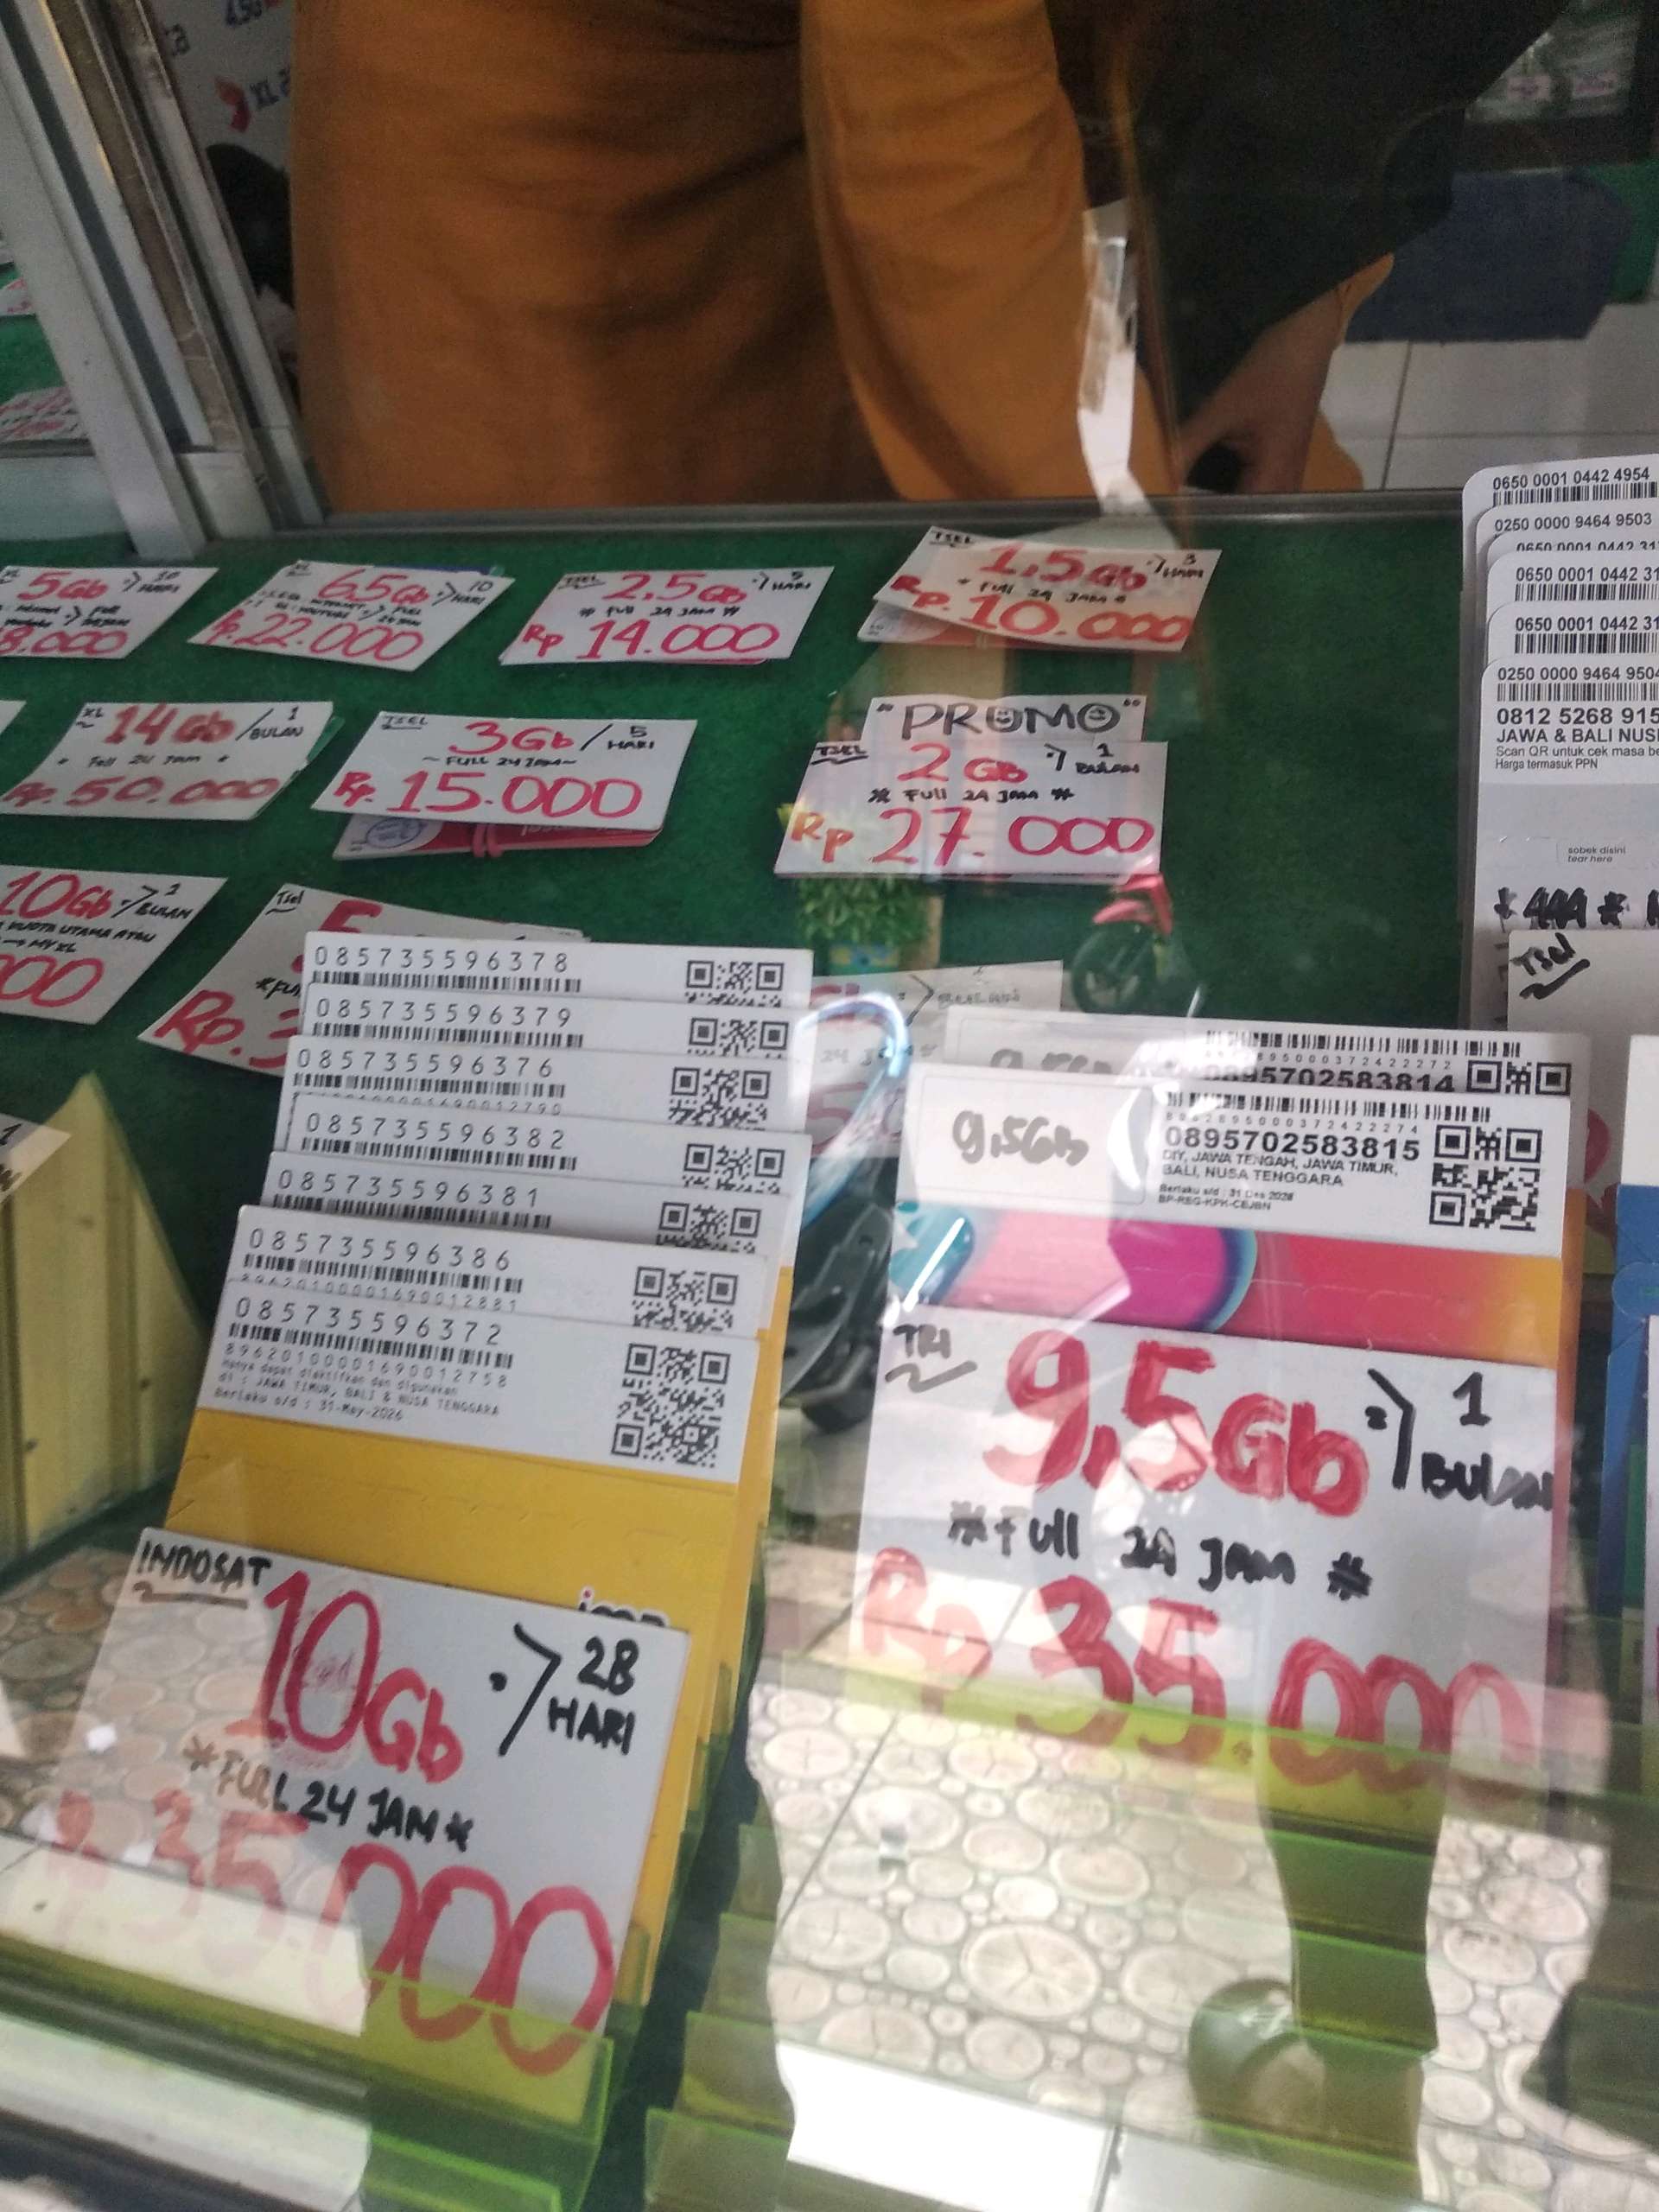 XL
5Gb
HARI
8.000
XL
6.5Gb
10
HARI
Rp.22.000
TSEL
2,5Gb
5
HARI
* FUll 24 JAM *
Rp 14.000
TSEL
1,5Gb
3
HARI
* FUll 24 JAM *
Rp. 10.000
XL
14Gb / 1
BULAN
* Full 24 Jam *
Rp.50.000
TSEL
3Gb / 5
HARI
~ FULL 24 JAM ~
Rp. 15.000
"PROMO"
TSEL
2 GB
1
BULAN
* Full 24 JAM *
Rp 27.000
10Gb
BULAN
KUOTA UTAMA ATAU
MY XL
Tsel
5
Rp.
0650 0001 0442 4954
0250 0000 9464 9503
0650 0001 0442 31
0650 0001 0442 31
0650 0001 0442 31
0250 0000 9464 9504
0812 5268 915
JAWA & BALI NUS
Scan QR untuk cek masa be
Harga termasuk PPN
sobek disini
tear here
Tsel
085735596378
085735596379
085735596376
085735596382
085735596381
085735596386
89620100001690012881
085735596372
89620100001690012758
Hanya dapat diaktifkan dan digunakan
di : JAWA TIMUR, BALI & NUSA TENGGARA
Berlaku s/d : 31-May-2026
INDOSAT
10Gb
28
HARI
*FULL 24 JAM*
Rp.35.000
0895702583814
9,5Gb
0895702583815
DIY, JAWA TENGAH, JAWA TIMUR,
BALI, NUSA TENGGARA
Berlaku s/d : 31 Des 2026
BP-REG-KPK-CEJBN
TRI
9,5Gb
1
BULAN
*Full 24 JAM *
Rp 35.000